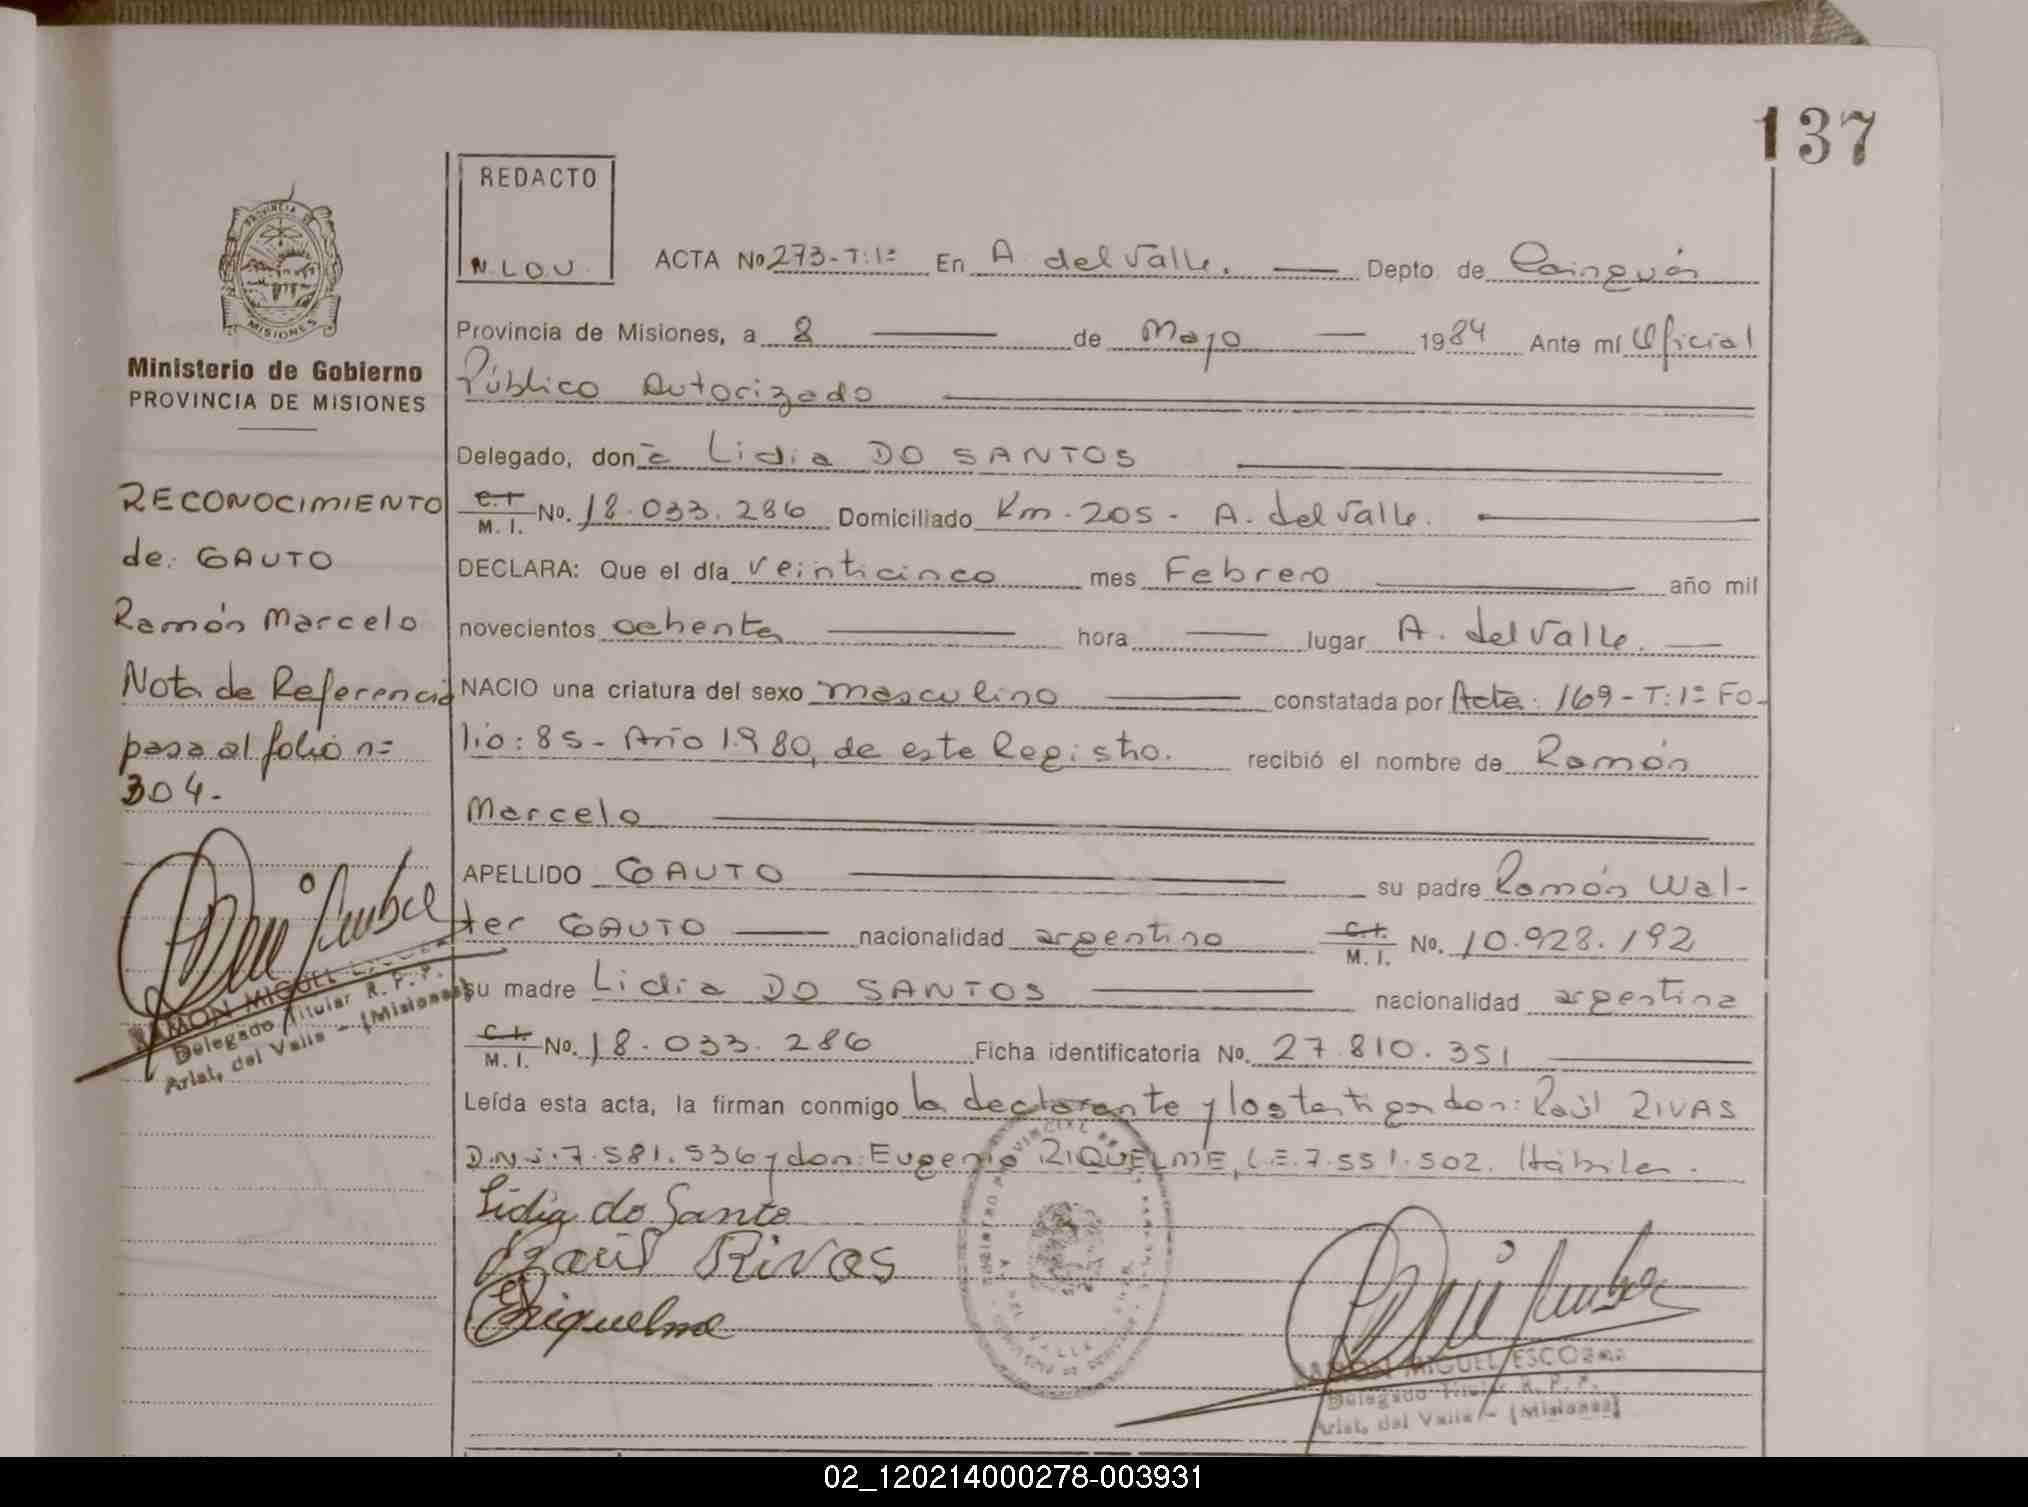 137
REDACTO
N.LOU.
ACTA No 273-T:1º En A. del Valle. Depto. de Cainguás
Provincia de Misiones, a 8 de Mayo 1984 Ante mí Oficial
Público Autorizado
Delegado, doña Lidia DO SANTOS
C.I. M. I. No. 18.033.286 Domiciliado Km-205- A. del Valle.
DECLARA: Que el día veinticinco mes Febrero año mil
novecientos ochenta hora lugar A. del Valle.
NACIO una criatura del sexo masculino constatada por Acta: 169-T:1º Fo-
lio: 85- Año 1.980, de este Registro. recibió el nombre de Ramón
Marcelo
APELLIDO GAUTO su padre Ramón Wal-
ter GAUTO nacionalidad argentino C.I. M. I. No. 10.928.192
su madre Lidia DO SANTOS nacionalidad argentina
C.I. M. I. No. 18.033.286 Ficha identificatoria No. 27.810.351
Leída esta acta, la firman conmigo la declarante y los testigos don: Raúl RIVAS
D.N.I. 7.581.536 y don: Eugenio RIQUELME, L.E. 7.551.502. Hábiles.
Lidia do Santo
Raúl Rivas
ERiquelme
RAMON MIGUEL ESCOBAR
Delegado Titular R. P. P.
Arist. del Valle - (Misiones)
PROVINCIA DE
MISIONES
Ministerio de Gobierno
PROVINCIA DE MISIONES
RECONOCIMIENTO
de: GAUTO
Ramón Marcelo
Nota de Referencia
pasa al folio nº
304.
RAMON MIGUEL
Delegado Titular R. P. P.
Arist. del Valle - (Misiones)
02_120214000278-003931